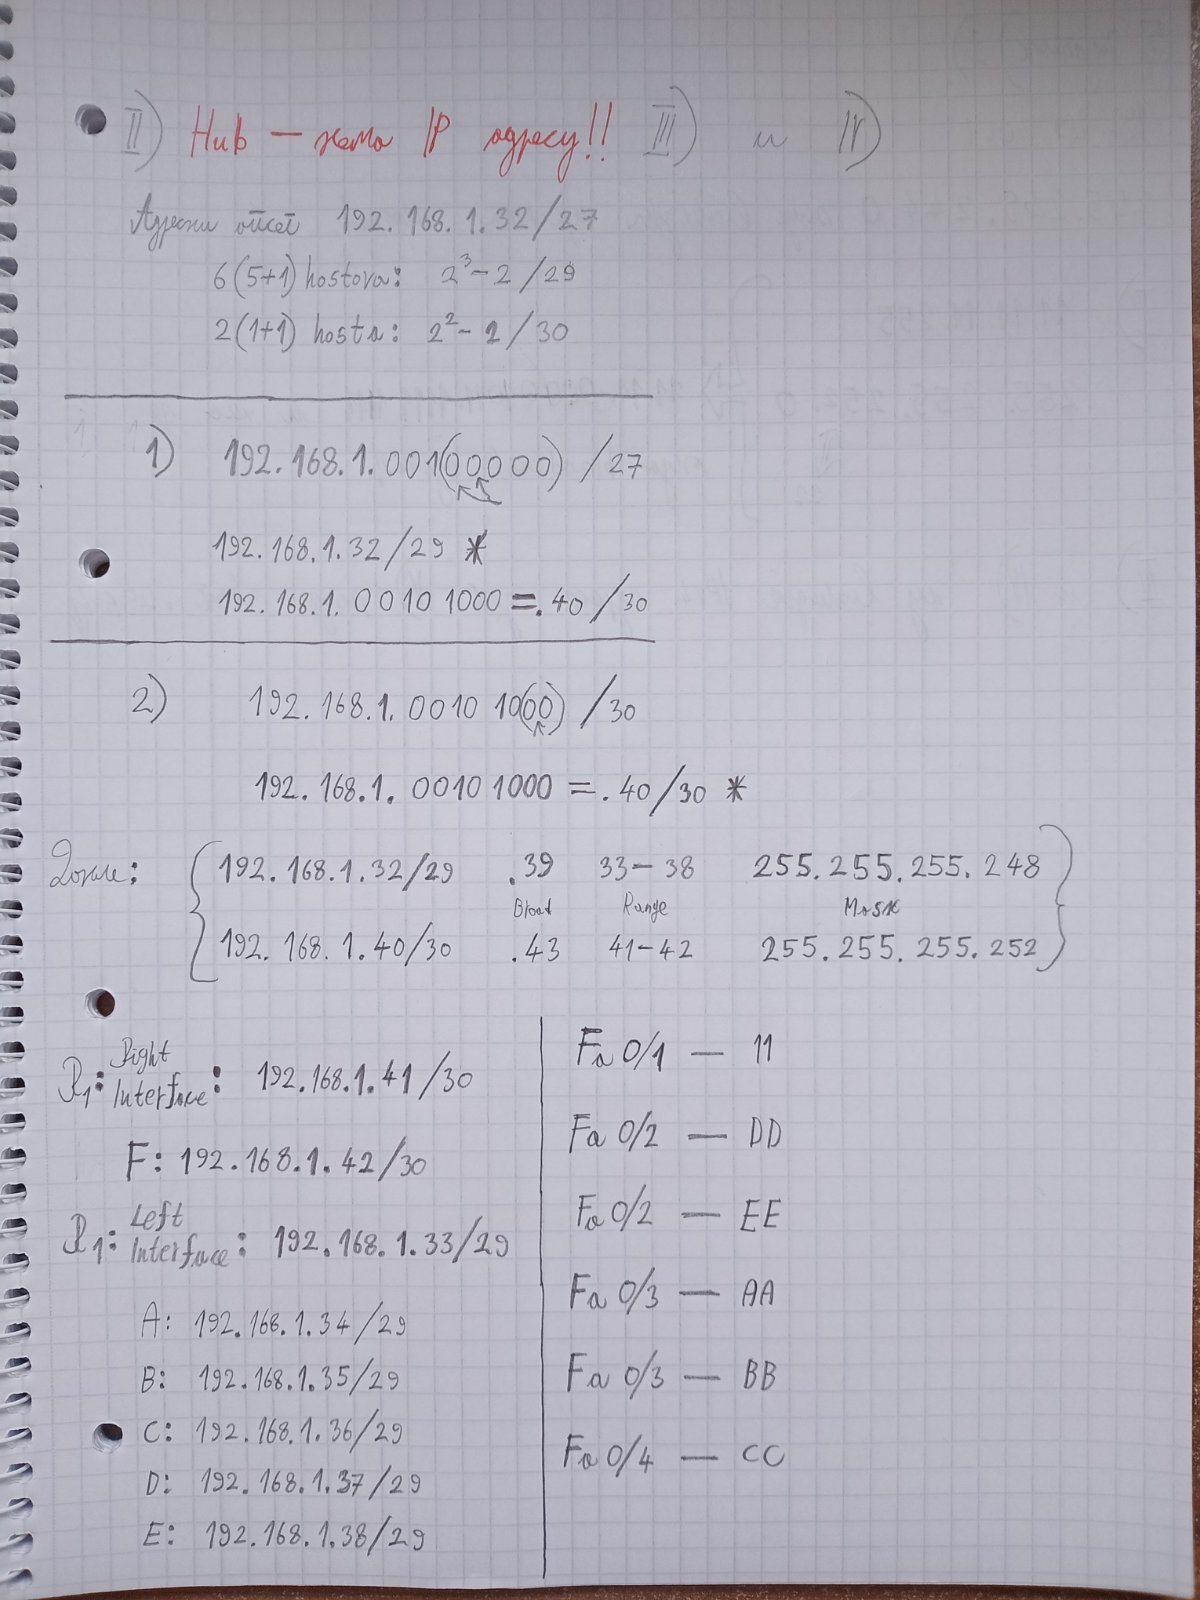 II) Hub — нема IP адресу!! III) и IV)
Адресни опсег 192.168.1.32/27
6(5+1) hostova: 2³-2 /29
2(1+1) hosta: 2²-2 /30
1) 192.168.1.001(00000) /27
192.168.1.32/29 *
192.168.1.0010 1000 = .40/30
2) 192.168.1.0010 10(00) /30
192.168.1.0010 1000 = .40/30 *
192.168.1.32/29 .39 33-38 255.255.255.248
Range Mask
192.168.1.40/30 .43 41-42 255.255.255.252
R1: Right Interface: 192.168.1.41/30
F: 192.168.1.42/30
R1: Left Interface: 192.168.1.33/29
A: 192.168.1.34/29
B: 192.168.1.35/29
C: 192.168.1.36/29
D: 192.168.1.37/29
E: 192.168.1.38/29
Fa 0/1 — 11
Fa 0/2 — DD
Fa 0/2 — EE
Fa 0/3 — AA
Fa 0/3 — BB
Fa 0/4 — CC